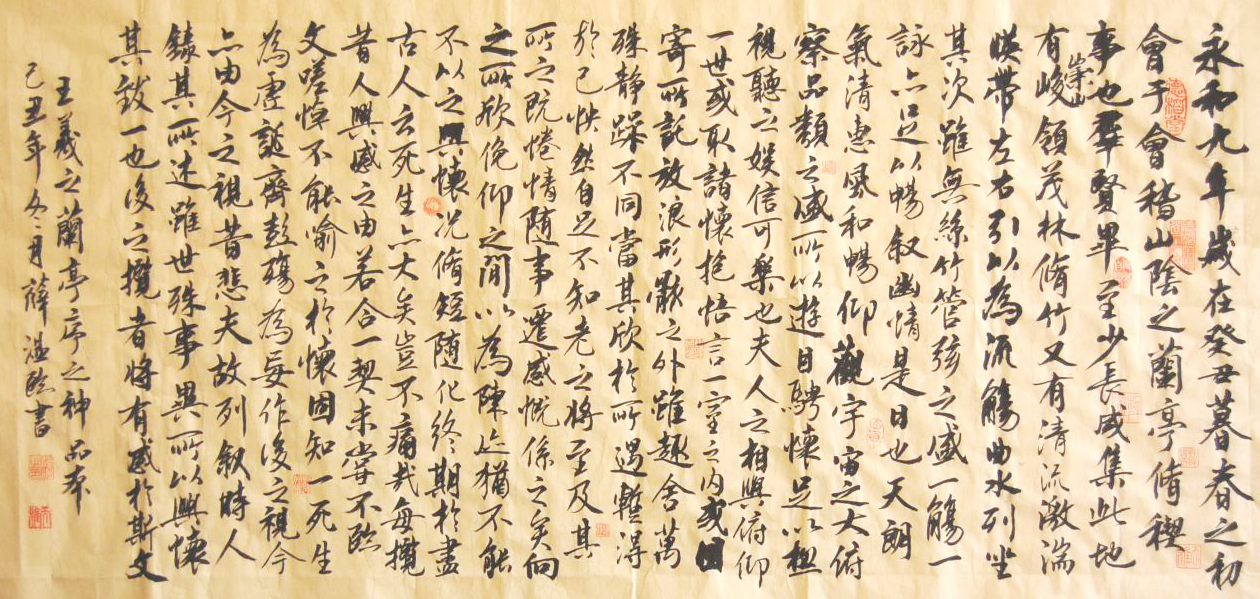 永和九年歲在癸丑暮春之初
會于會稽山陰之蘭亭脩稧
事也羣賢畢至少長咸集此地
有崇山峻領茂林脩竹又有清流激湍
暎帶左右引以為流觴曲水列坐
其次雖無絲竹管弦之盛一觴一
詠亦足以暢叙幽情是日也天朗
氣清惠風和暢仰觀宇宙之大俯
察品類之盛所以遊目騁懷足以極
視聽之娛信可樂也夫人之相與俯仰
一世或取諸懷抱悟言一室之內或因
寄所託放浪形骸之外雖趣舍萬
殊靜躁不同當其欣於所遇暫得
於己怏然自足不知老之將至及其
所之既惓情隨事遷感慨係之矣向
之所欣俛仰之間以為陳迹猶不能
不以之興懷況脩短隨化終期於盡
古人云死生亦大矣豈不痛哉每攬
昔人興感之由若合一契未嘗不臨
文嗟悼不能喻之於懷固知一死生
為虛誕齊彭殤為妄作後之視今
亦由今之視昔悲夫故列叙時人
錄其所述雖世殊事異所以興懷
其致一也後之攬者將有感於斯文
王羲之蘭亭序之神品本
己丑年冬月薛溫臨書